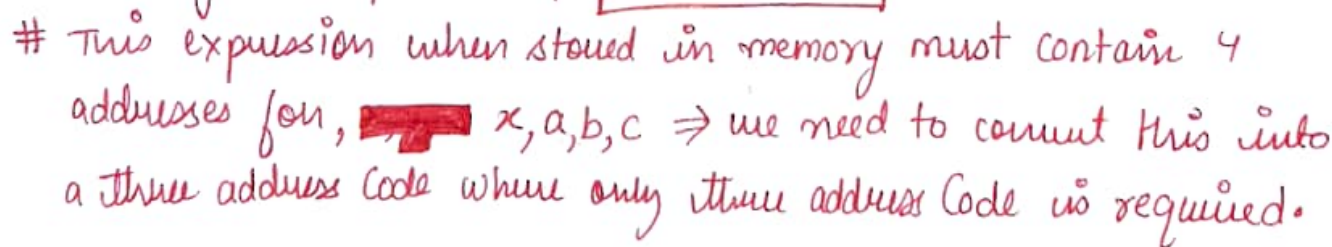 # This expression when stored in memory must contain 4
addresses for, x, a, b, c ⇒ we need to convert this into
a three address Code where only three address Code is required.